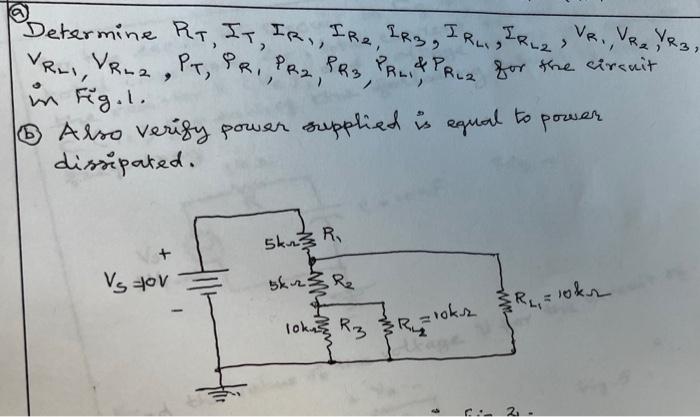 (a)
Determine RT, IT, IR1, IR2, IR3, IRL1, IRL2, VR1, VR2, VR3,
VRL1, VRL2, PT, PR1, PR2, PR3, PRL1, & PRL2 for the circuit
in Fig.1.
(b) Also verify power supplied is equal to power
dissipated.
5kΩ R1
+
Vs=10V
-
5kΩ R2
RL1=10kΩ
10kΩ R3
RL2=10kΩ